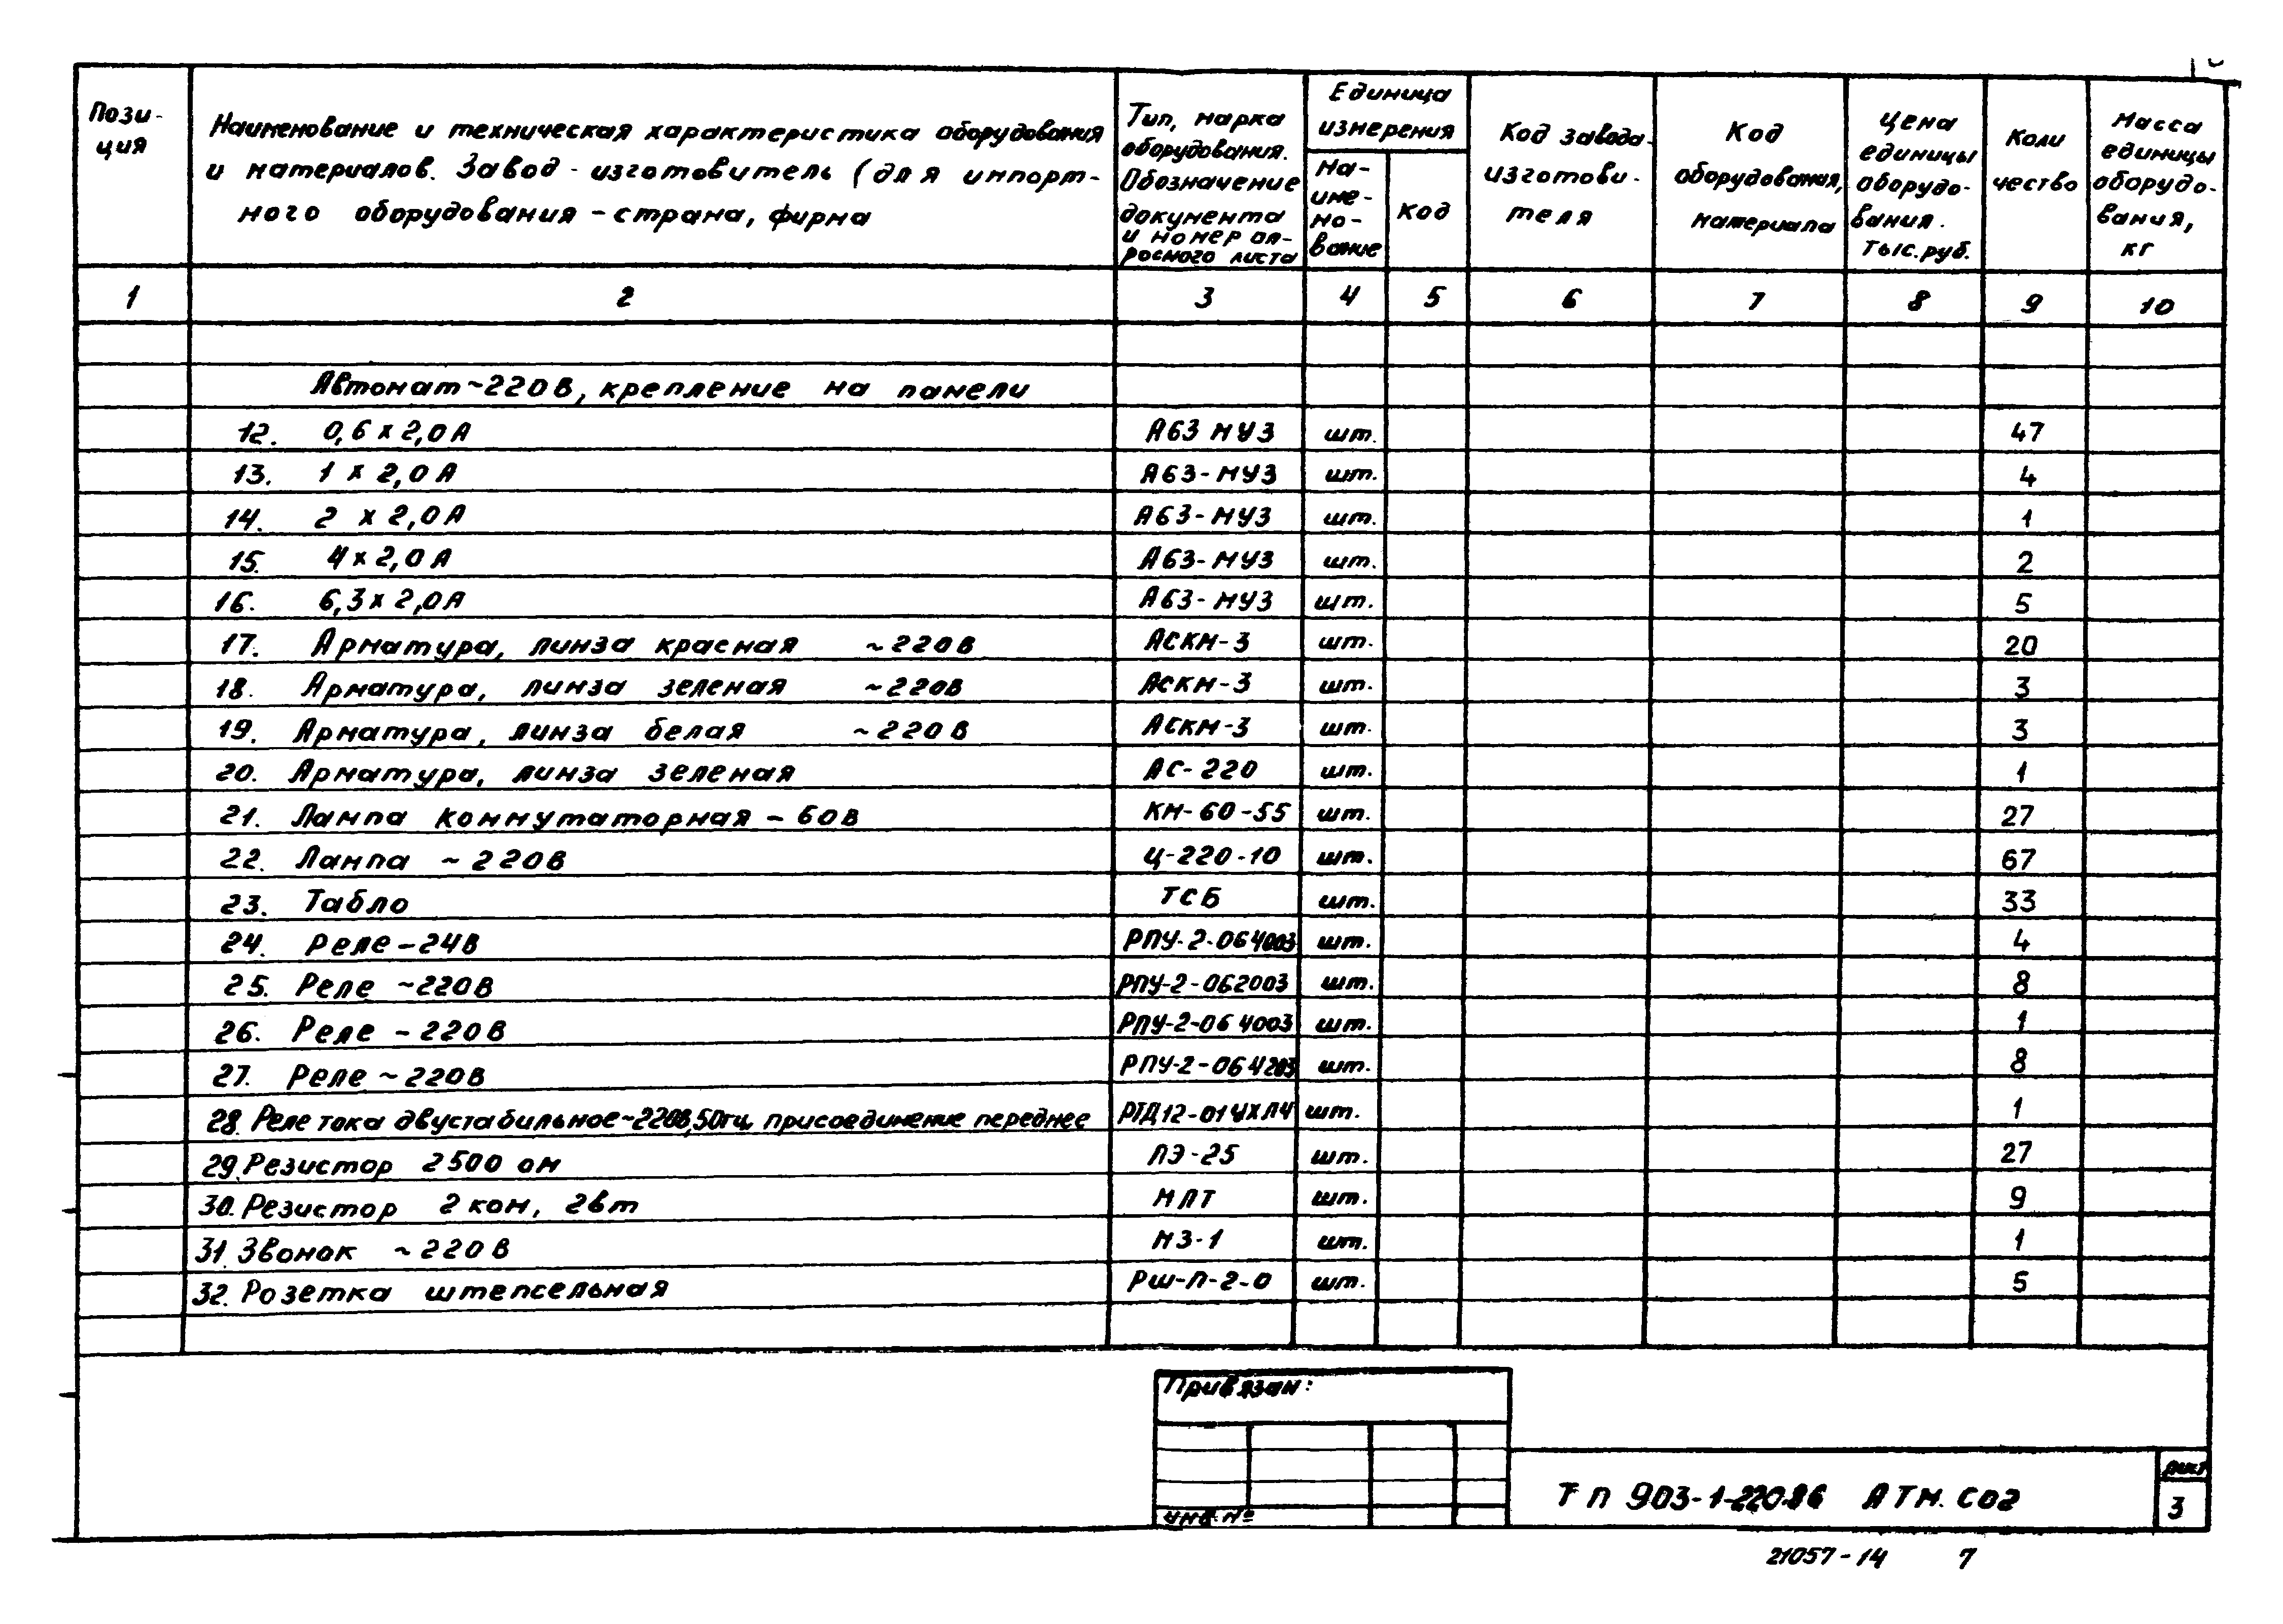 Пози-
ция
Наименование и техническая характеристика оборудования
и материалов. Завод-изготовитель (для импорт-
ного оборудования - страна, фирма
Тип, марка
оборудования.
Обозначение
документа
и номер оп-
росного листа
Единица
измерения
На-
име-
но-
вание
код
Код завода-
изготови-
теля
Код
оборудования,
материала
Цена
единицы
оборудо-
вания.
тыс.руб.
Коли
чество
Масса
единицы
оборудо-
вания,
кг
1 2 3 4 5 6 7 8 9 10
Автомат ~220В, крепление на панели
12. 0,6 х 2,0А А63 МУ3 шт. 47
13. 1 х 2,0А А63-МУ3 шт. 4
14. 2 х 2,0А А63-МУ3 шт. 1
15. 4 х 2,0А А63-МУ3 шт. 2
16. 6,3 х 2,0А А63-МУ3 шт. 5
17. Арматура, линза красная ~220В АСКМ-3 шт. 20
18. Арматура, линза зеленая ~220В АСКМ-3 шт. 3
19. Арматура, линза белая ~220В АСКМ-3 шт. 3
20. Арматура, линза зеленая АС-220 шт. 1
21. Лампа коммутаторная - 60В КМ-60-55 шт. 27
22. Лампа ~220В Ц-220-10 шт. 67
23. Табло ТСБ шт. 33
24. Реле -24В РПУ-2-064003 шт. 4
25. Реле ~220В РПУ-2-062003 шт. 8
26. Реле -220В РПУ-2-064003 шт. 1
27. Реле ~220В РПУ-2-064203 шт. 8
28. Реле тока двустабильное ~220В,50гц, присоединение переднее РТД12-01УХЛ4 шт. 1
29. Резистор 2500 ом ПЭ-25 шт. 27
30. Резистор 2 ком, 2вт МЛТ шт. 9
31. Звонок ~220В МЗ-1 шт. 1
32. Розетка штепсельная РШ-П-2-0 шт. 5
Привязан:
инв.№
ТП 903-1-220.86 АТМ.СО2
лист
3
21057-14 7